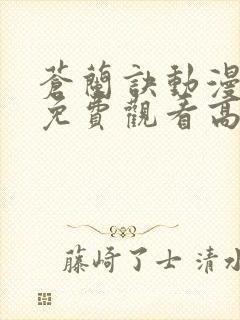 蒼蘭訣動漫
免費觀看高
藤崎了士 清水